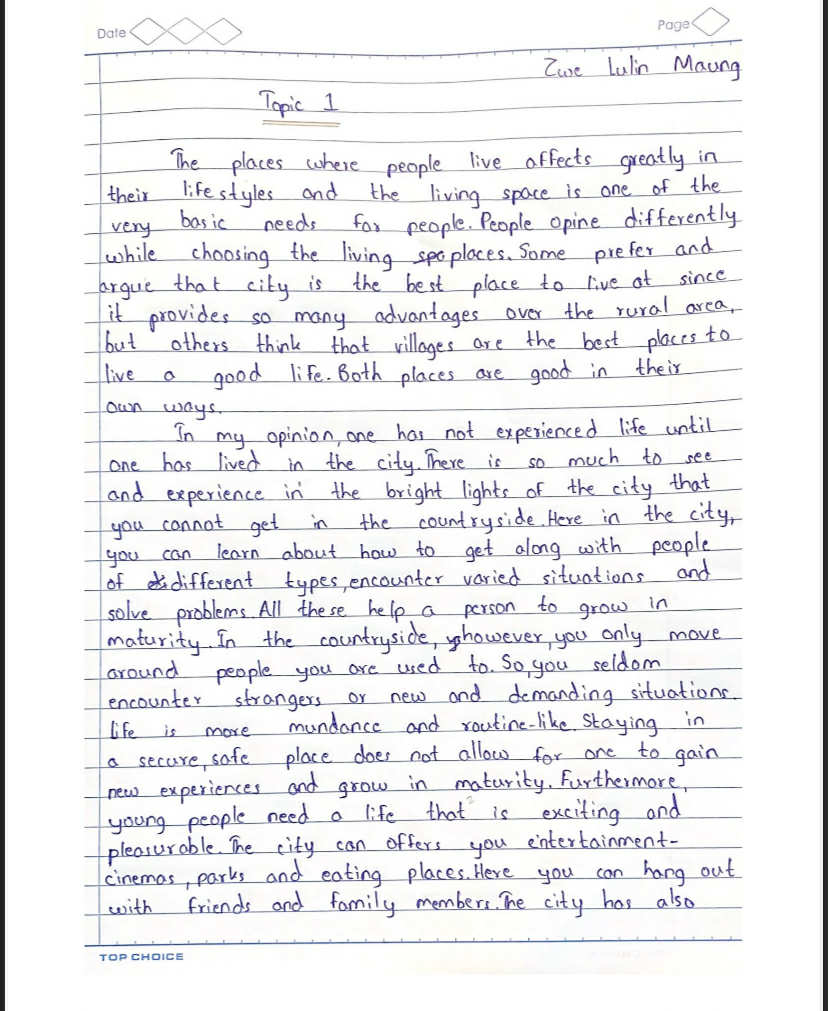 Date
Page
Zwe Lulin Maung
Topic 1
The places where people live affects greatly in
their lifestyles and the living space is one of the
very basic needs for people. People opine differently
while choosing the living places. Some prefer and
argue that city is the best place to live at since
it provides so many advantages over the rural area,
but others think that villages are the best places to
live a good life. Both places are good in their
own ways.
In my opinion, one has not experienced life until
one has lived in the city. There is so much to see
and experience in the bright lights of the city that
you cannot get in the countryside. Here in the city,
you can learn about how to get along with people
of different types, encounter varied situations and
solve problems. All these help a person to grow in
maturity. In the countryside, however, you only move
around people you are used to. So, you seldom
encounter strangers or new and demanding situations.
Life is more mundance and routine-like. Staying in
a secure, safe place does not allow for one to gain
new experiences and grow in maturity. Furthermore,
young people need a life that is exciting and
pleasurable. The city can offers you entertainment-
cinemas, parks and eating places. Here you can hang out
with friends and family members. The city has also
TOP CHOICE